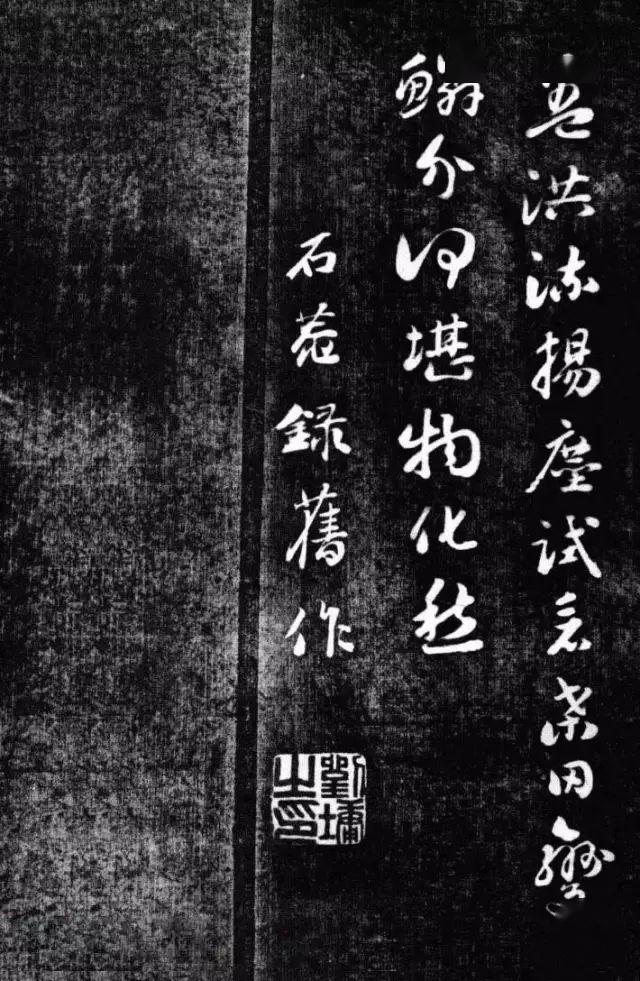 洪流揚塵試桑田變
分何堪物化愁
石菴錄舊作
劉墉之印